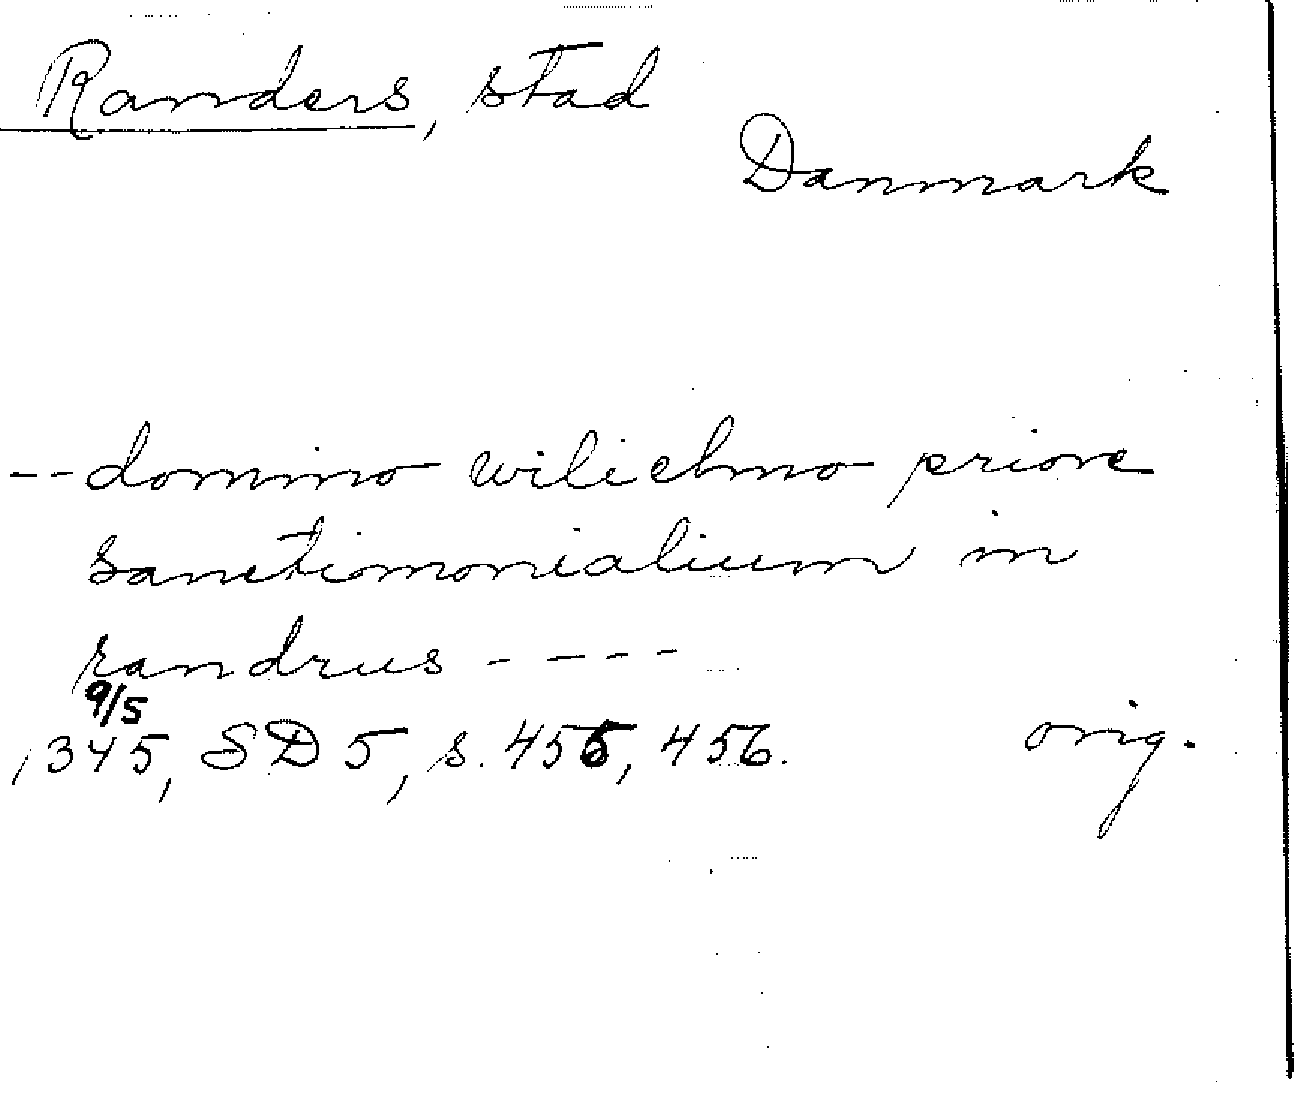 Randers, stad
Danmark
-- domino wilielmo priore
sanctimonialium in
randrus - - - -
9/5
1345, SD 5, s. 455, 456. orig.